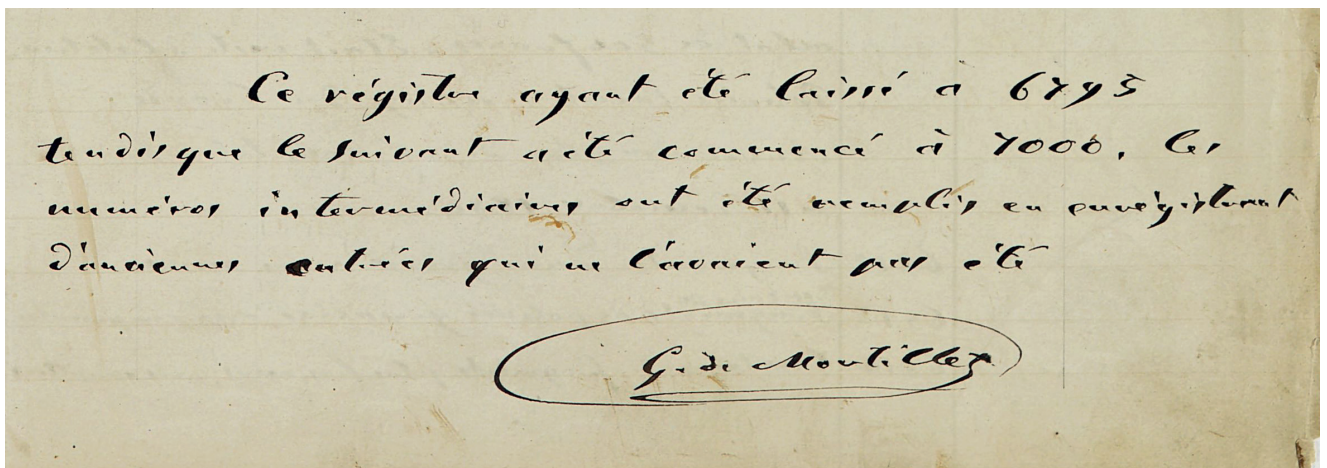 Ce régistre ayant été laissé a 6795
tandis que le suivant a été commencé à 7000, les
numéros intermédiaires ont été remplis en enrégistrant
d'anciennes entrées qui ne l'avaient pas été
G. de Mortillet